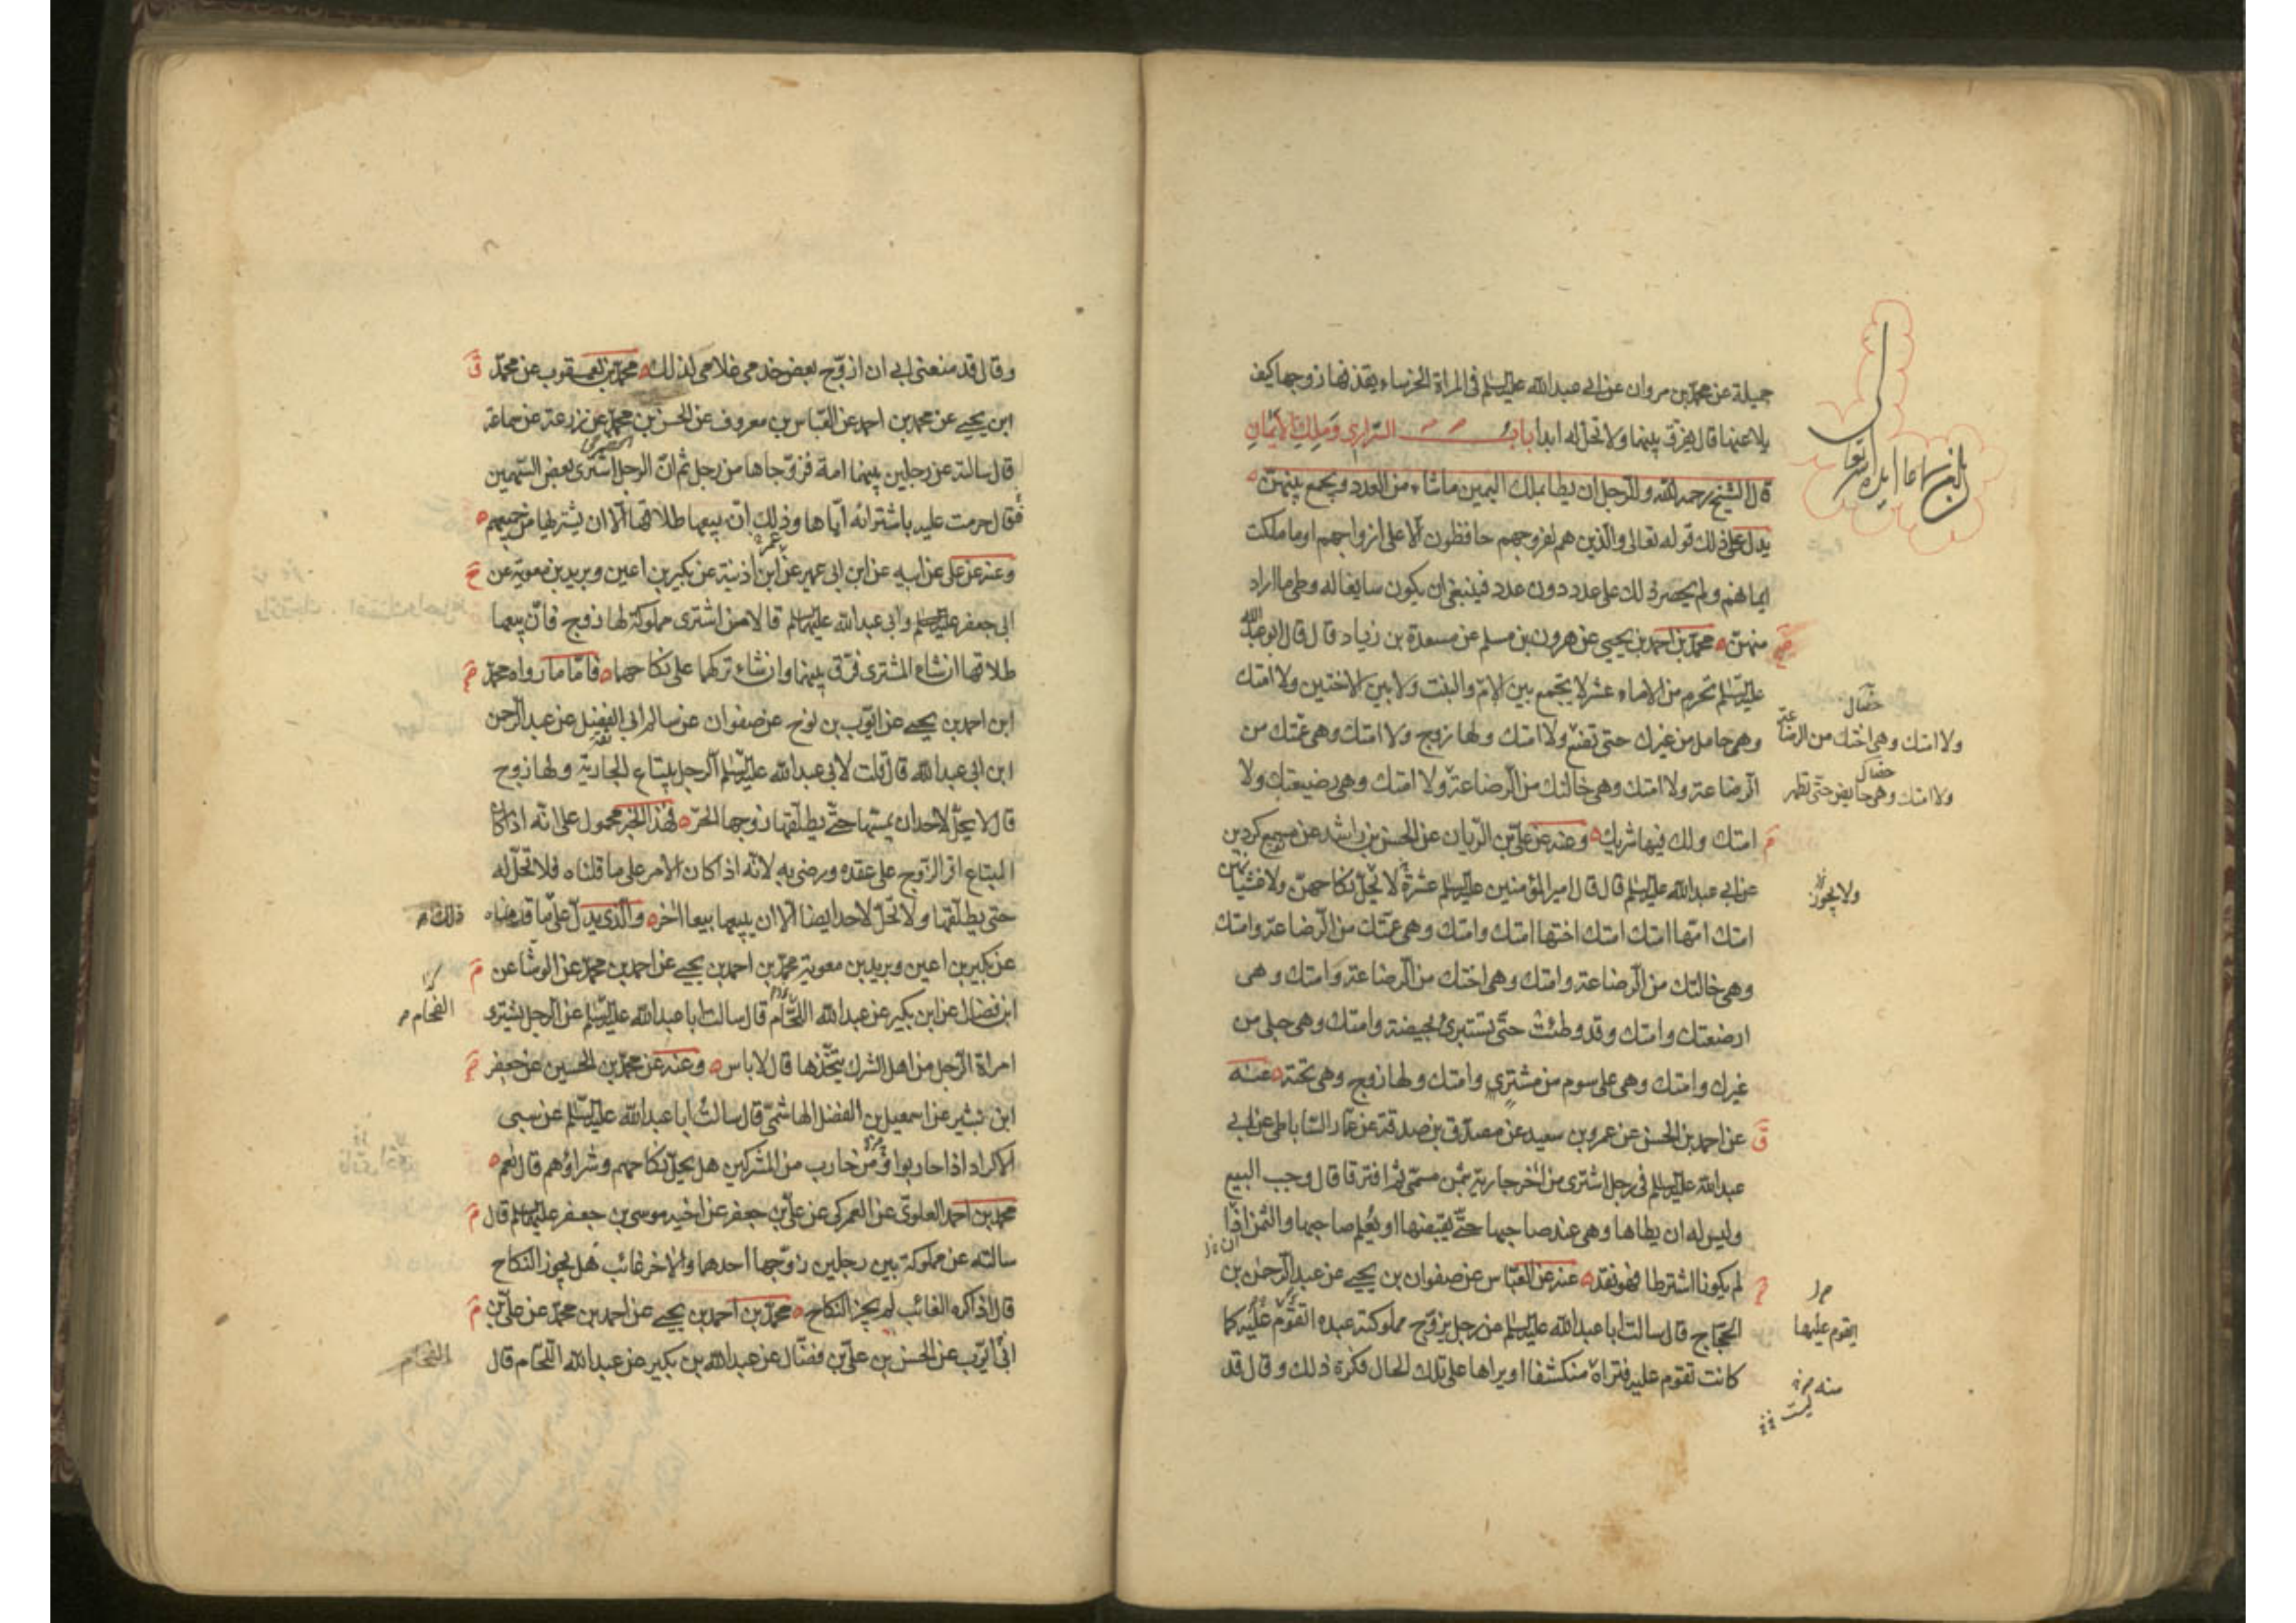 جميلة عن محمد بن مروان عن ابي عبدالله عليه السلم في المراة الخرساء يقذفها زوجها كيف
يلاعنها قال يفرق بينهما ولا تحل له ابدا باب السراري وملك الايمان
قال الشيخ رحمه الله وللرجل ان يطا بملك اليمين ماشاء من العدد ويجمع بينهن
يدل على ذلك قوله تعالى والذين هم لفروجهم حافظون الا على ازواجهم او ما ملكت
ايمانهم ولم يحصر ذلك على عدد دون عدد فينبغي ان يكون سايغا له وطى ما اراد
منهن محمد بن احمد بن يحيى عن هرون بن مسلم عن مسعدة بن زياد قال قال ابو عبد الله
عليه السلم تحرم من الاماء عشر لا يجمع بين الام والبنت ولا بين الاختين ولا امتك
وهي حامل من غيرك حتى تضع ولا امتك ولها زوج ولا امتك وهي عمتك من
الرضاعة ولا امتك وهي خالتك من الرضاعة ولا امتك وهي رضيعتك ولا
امتك ولك فيها شريك وعنه عن علي بن الريان عن الحسن بن راشد عن مسمع كردين
عن ابي عبدالله عليه السلم قال قال امير المؤمنين عليه السلم عشرة لا تحل نكاحهن ولا غشيانهن
امتك امها امتك امتك اختها امتك وامتك وهي عمتك من الرضاعة وامتك
وهي خالتك من الرضاعة وامتك وهي اختك من الرضاعة وامتك وهي
ارضعتك وامتك وقد وطئت حتى تستبرئ بحيضة وامتك وهي حبلى من
غيرك وامتك وهي على سوم من مشتري وامتك ولها زوج وهي تحته عنه
عن احمد بن الحسن عن عمرو بن سعيد عن مصدق بن صدقة عن عمار الساباطي عن ابي
عبدالله عليه السلم في رجل اشترى من اخر جارية بثمن مسمى ثم افترقا قال وجب البيع
وليس له ان يطاها وهي عند صاحبها حتى يقبضها او يعلم صاحبها والثمن اذا
لم يكونا اشترطا فهو نقد عنه عن العباس عن صفوان بن يحيى عن عبد الرحمن بن
الحجاج قال سالت ابا عبدالله عليه السلم عن رجل يزوج مملوكته عبده اتقوم عليه كما
كانت تقوم عليه فتراه منكشفا او يراها على تلك الحال فكره ذلك وقال قد
ولا امتك وهي اختك من الرضاعة
ولا امتك وهي حايض حتى تطهر
ولا يجوز
ايقوم عليها
منه
وقال قد منعني ابي ان ازوج بعض خدمي غلامي لذلك محمد بن يعقوب عن محمد
ابن يحيى عن محمد بن احمد عن العباس بن معروف عن الحسن بن محمد عن زرعة عن سماعة
قال سالته عن رجلين بينهما امة فزوجاها من رجل ثم ان الرجل اشترى بعض السهمين
فقال حرمت عليه باشترائه اياها وذلك ان بيعها طلاقها الا ان يشتريها من جميعهم
وعنه عن علي عن ابيه عن ابن ابي عمير عن ابن اذينة عن بكير بن اعين وبريد بن معوية عن
ابي جعفر عليه السلم وابي عبدالله عليهما السلم قالا من اشترى مملوكة لها زوج فان بيعها
طلاقها ان شاء المشترى فرق بينهما وان شاء تركهما على نكاحهما فاما ما رواه محمد
ابن احمد بن يحيى عن ايوب بن نوح عن صفوان عن سالم ابي الفضل عن عبد الرحمن
ابن ابي عبدالله قال قلت لابي عبدالله عليه السلم الرجل يبتاع الجارية ولها زوج
قال لا يحل لاحد ان يمسها حتى يطلقها زوجها الحر فهذا الخبر محمول على انه اذا كان
المبتاع اقر الزوج على عقده ورضي به لانه اذا كان الامر على ما قلناه فلا تحل له
حتى يطلقها ولا تحل لاحد ايضا الا ان يبيعها بيعا اخر والذي يدل على ما قدمناه
عن بكير بن اعين وبريد بن معوية محمد بن احمد بن يحيى عن احمد بن محمد عن الوشا عن
ابن فضال عن ابن بكير عن عبدالله اللحام قال سالت ابا عبدالله عليه السلم عن الرجل يشترى
امراة الرجل من اهل الشرك يتخذها قال لا باس وعنه عن محمد بن الحسين عن جعفر
ابن بشير عن اسمعيل بن الفضل الهاشمي قال سالت ابا عبدالله عليه السلم عن سبي
الاكراد اذا حاربوا ومن حارب من المشركين هل يحل نكاحهم وشراؤهم قال نعم
محمد بن احمد العلوي عن العمركي عن علي بن جعفر عن اخيه موسى بن جعفر عليهما السلم قال
سالته عن مملوكة بين رجلين زوجها احدهما والاخر غائب هل يجوز النكاح
قال اذا كره الغائب لم يجز النكاح محمد بن احمد بن يحيى عن احمد بن محمد عن علي بن
ابي ايوب عن الحسن بن علي بن فضال عن عبدالله بن بكير عن عبدالله اللحام قال
ذلك